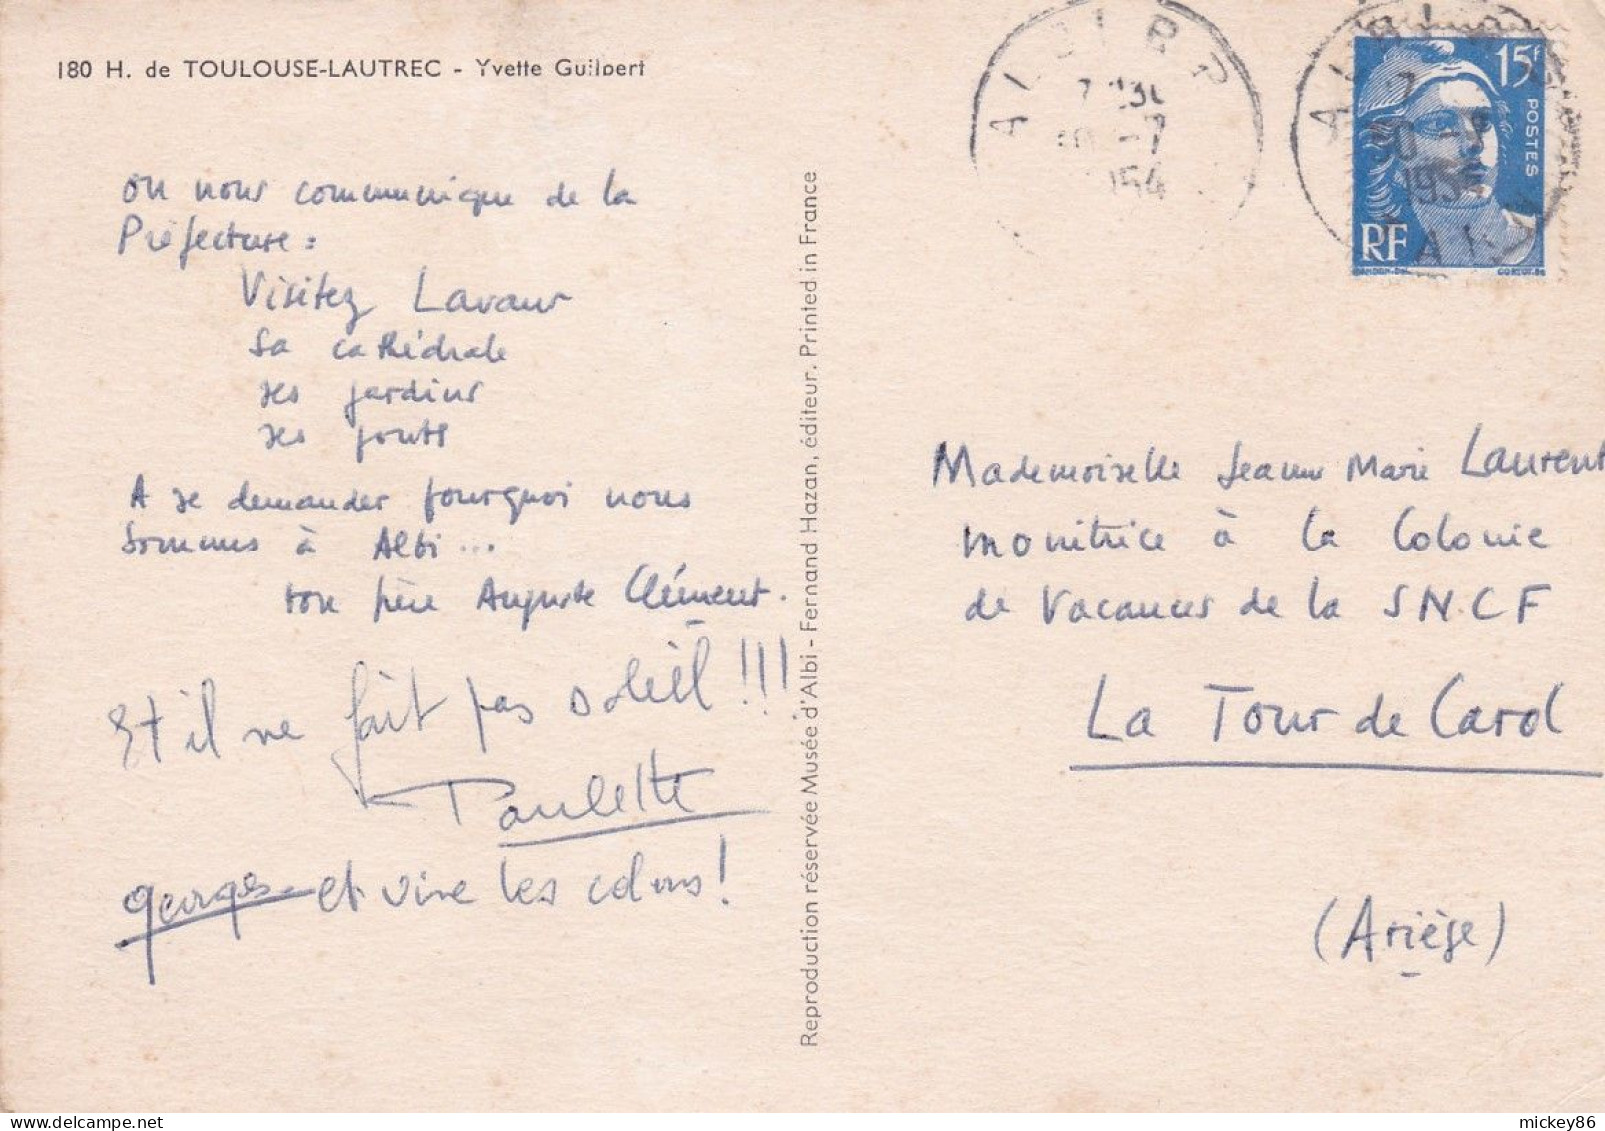 180 H. de TOULOUSE-LAUTREC - Yvette Guilbert
on nous communique de la
Préfecture :
Visitez Lavaur
sa cathédrale
ses jardins
ses ponts
A se demander pourquoi nous
sommes à Albi...
ton père Auguste Clément.
Et il ne fait pas soleil !!!
Paulette
georges - et vive les colons !
Reproduction réservée Musée d'Albi - Fernand Hazan, éditeur. Printed in France
ALBI RP
-7
15F
POSTES
RF
GANDON-DEL
CORTOT-SC
ALBI RP
30 -7
1954
TARN
Mademoiselle Jeanne Marie Laurent
monitrice à la Colonie
de Vacances de la S.N.C.F
La Tour de Carol
(Ariège)
mickey86